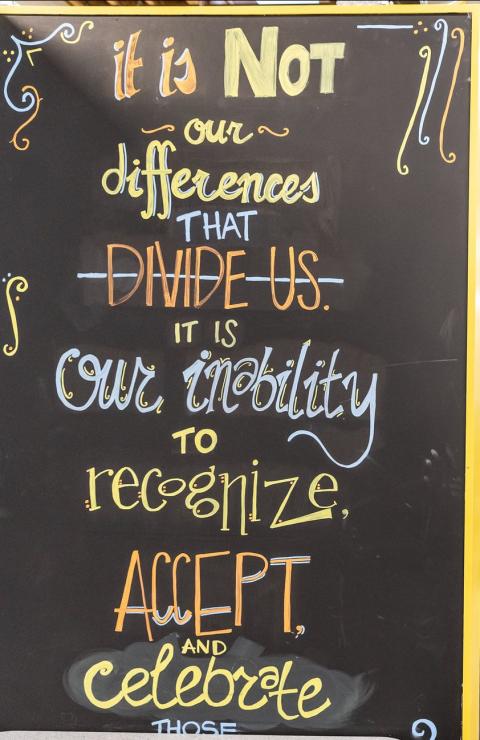 it is NOT
our
differences
THAT
DIVIDE US.
IT IS
Our inability
TO
recognize,
ACCEPT,
AND
celebrate
THOSE